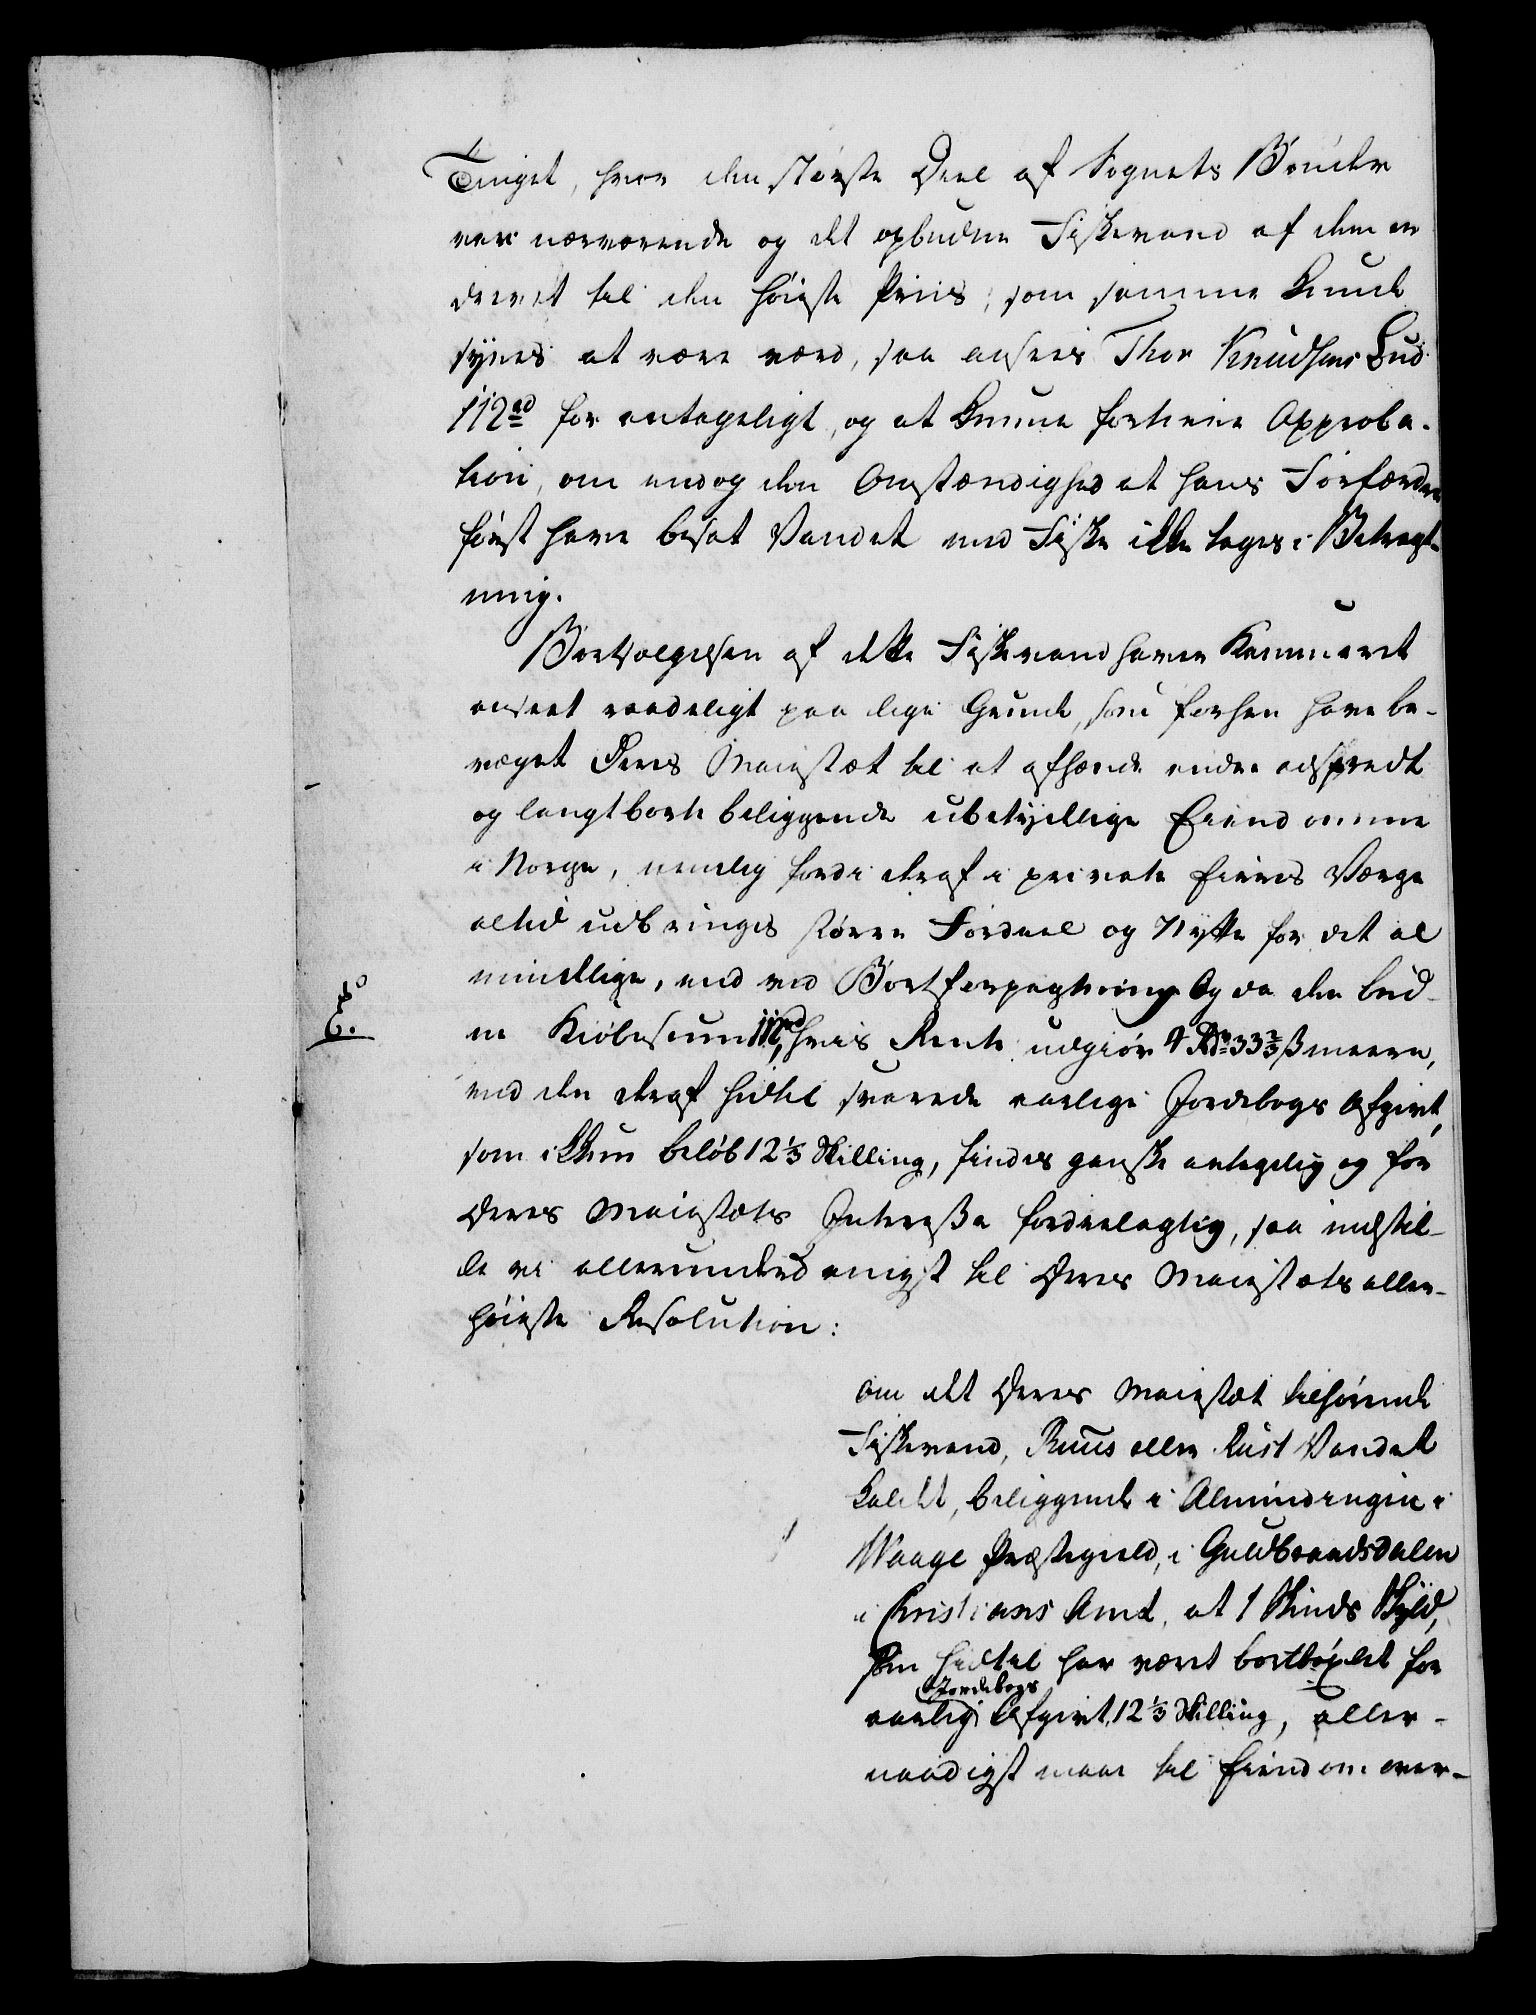 Tinget, hvor den største Deel af Sognets Bönder
var nærværende og det opbudne Fiskevand af dem er
drevet til den høieste Priis, som samme kunde
synes at være værd, saa ansees Thor Knudsens Bud
112 rd for antageligt, og at kunne fortiene Approba-
tion, om endog den Omstændighed at hans Forfædre
først have besat Vandet med Fiske ikke tages i Betragt-
ning.
Bortsælgelsen af dette Fiskevand haver Kammeret
anseet raadeligt paa lige Grunde, som forhen have be-
væget Deres Maiestæt til at afhænde andre adspredte
og langtborte beliggende ubetydelige Eiendomme
i Norge, nemlig fordi deraf i private Eieres Værge
altid udbringes större Fordeel og Nytte for det al
mindelige, end ved Bortforpagtning Og da den bud-
ne Kiöbesum 112 rd, hvis Rente udgiör 4 Rdr 33 3/5 ß meere,
end den deraf hidtil svarede aarlige Jordebogs Afgivt,
som ikkun beløb 12 1/3 Skilling, findes ganske antagelig og for
Deres Maiestæts Interesse fordeelagtig, saa indstil-
le vi allerunderdanigst til Deres Maiestæts aller-
höieste Resolution:
om det Deres Maiestæt tilhörende
Fiskevand, Ruus eller Rust Vandet
kaldet, beliggende i Almindingen i
Waage Præstegield, i Guldbrandsdalen
i Christians Amt, at 1 Skinds Skyld,
som hidtil har været bortbøxlet for
aarlig Jordebogs Afgivt, 12 1/3 Skilling, aller-
naadigst maae til Eiendom over-